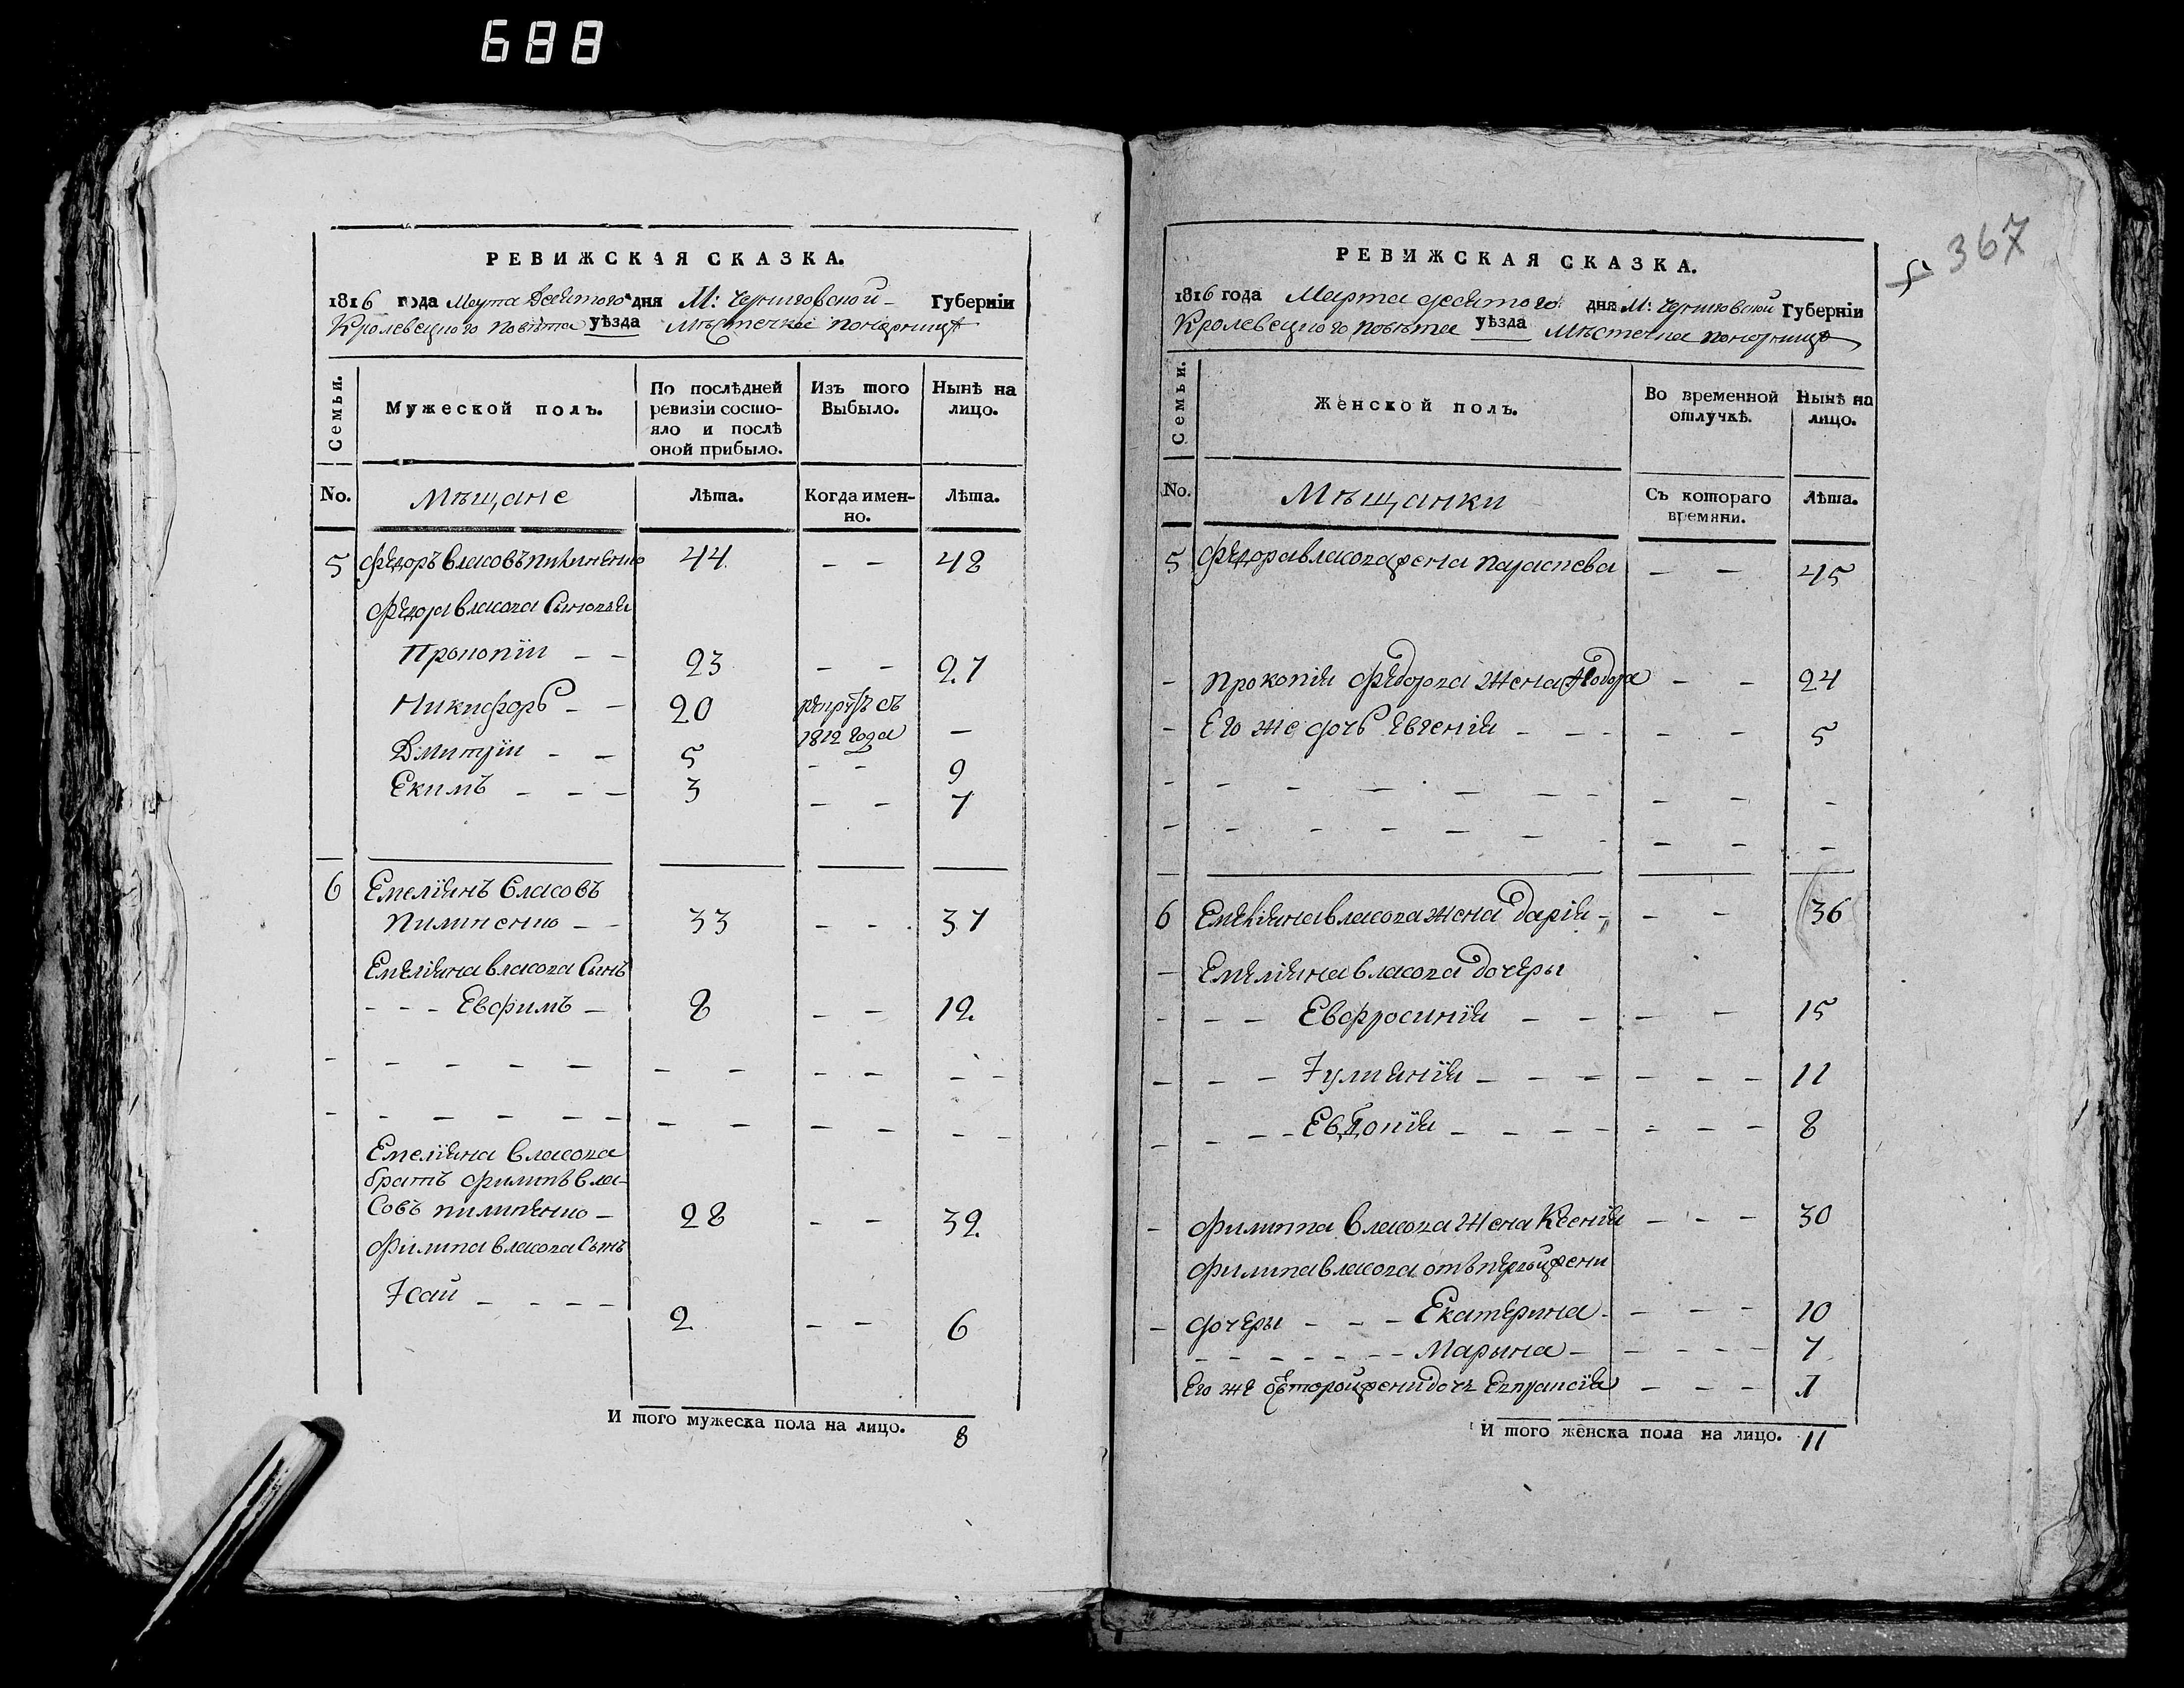 688
РЕВИЖСКАЯ СКАЗКА.
1816 года Марта Десятого дня М: Черниговской Губерніи
Кролевецкого Повѣта уѣзда Мѣстечка Понорницѣ
Семьи.
Мужеской полъ.
По послѣдней ревизіи состояло и послѣ оной прибыло.
Изъ того Выбыло.
Нынѣ на лицо.
No.
Мѣщане
Лѣта.
Когда именно.
Лѣта.
5 Федоръ Власовъ Пилипенко 44 - - 48
Федора Власова Сыновья
Прокопій - - 23 - - 27
Никифоръ - - 20 рекрутъ съ 1812 года -
Дмитрій - - 5 - - 9
Екимъ - - - 3 - - 7
6 Емеліянъ Власовъ
Пилипенко - - 33 - - 37
Емеліяна Власова Сынъ
- - - Евфимъ - 8 - - 12.
Емеліяна Власова
братъ Филипъ Вла-
совъ Пилипенко - 28 - - 32.
Филипа Власова Сынъ
Ісай - - - - 2 - - 6
И того мужеска пола на лицо. 8
367
РЕВИЖСКАЯ СКАЗКА.
1816 года Марта десятого дня М: Черниговской Губерніи
Кролевецкого Повѣта уѣзда Мѣстечка Понорницѣ
Семьи.
Женской полъ.
Во временной отлучкѣ.
Нынѣ на лицо.
No.
Мѣщанки
Съ котораго времяни.
Лѣта.
5 Федора Власова жена Параскева - - 45
- Прокопія Федорова жена - - 24
- Его же дочь Евгенія - - - - - 5
6 Емеліяна Власова жена Дарія - - - 36
- Емеліяна Власова Дочеры
- - - Евфросинія - - - - 15
- - - Іуліянія - - - - - - 11
- - - - Евдокія - - - - - - - 8
- Филиппа Власова жена Ксенія - - - 30
Филипа Власова отъ первой жени
- дочеры - - - Екатерина - - - - 10
- - - - - - - Марына - - - - - 7
Его же отъ второй жени дочь - - - 1
И того женска пола на лицо. 11